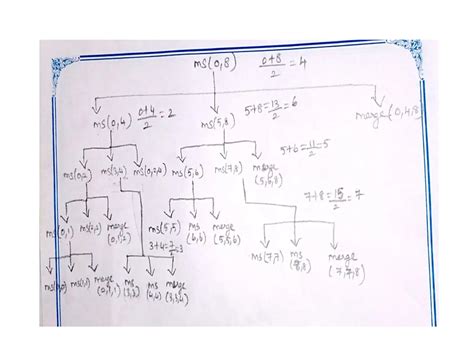 ms(0,8) 0+8/2 = 4
ms(0,4) 0+4/2 = 2 ms(5,8) 5+8=13/2=6 merge(0,4,8)
5+6=11/2=5
ms(0,2) ms(3,4) ms(0,2,4) ms(5,6) ms(7,8) merge
(5,6,8)
7+8=15/2=7
ms(0,1) ms(2,2) merge ms(5,5) ms merge
(0,1,2) (6,6) (5,5,6)
3+4=7/2=3
ms(7,7) ms merge
(8,8) (7,7,8)
ms(0,0) ms(1,1) merge ms ms merge
(0,0,1) (3,3) (4,4) (3,3,4)